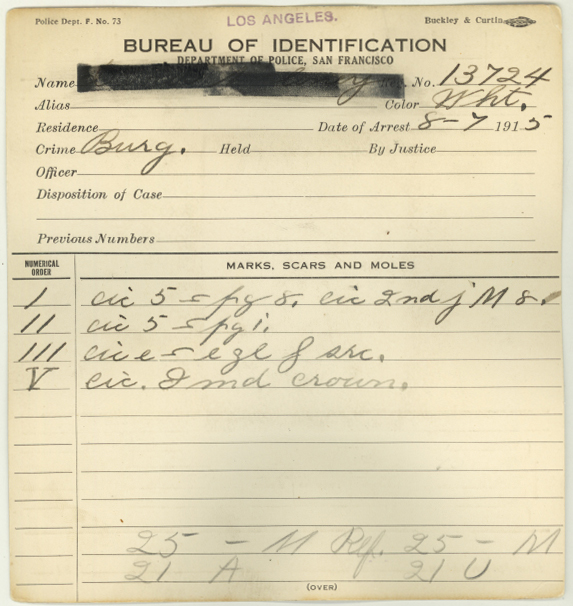 Police Dept. F. No. 73 LOS ANGELES. Buckley & Curtin
BUREAU OF IDENTIFICATION
DEPARTMENT OF POLICE, SAN FRANCISCO
Name No. 13724
Alias Color Wht.
Residence Date of Arrest 8-7 1915
Crime Burg. Held By Justice
Officer
Disposition of Case
Previous Numbers
NUMERICAL ORDER MARKS, SCARS AND MOLES
I cic 5 - pg 8. cic 2nd j M 8.
II cic 5 - pg i.
III cic e - egl f src.
V cic. I md crown.
25 - M Ref. 25 - M
21 A 21 U
(OVER)